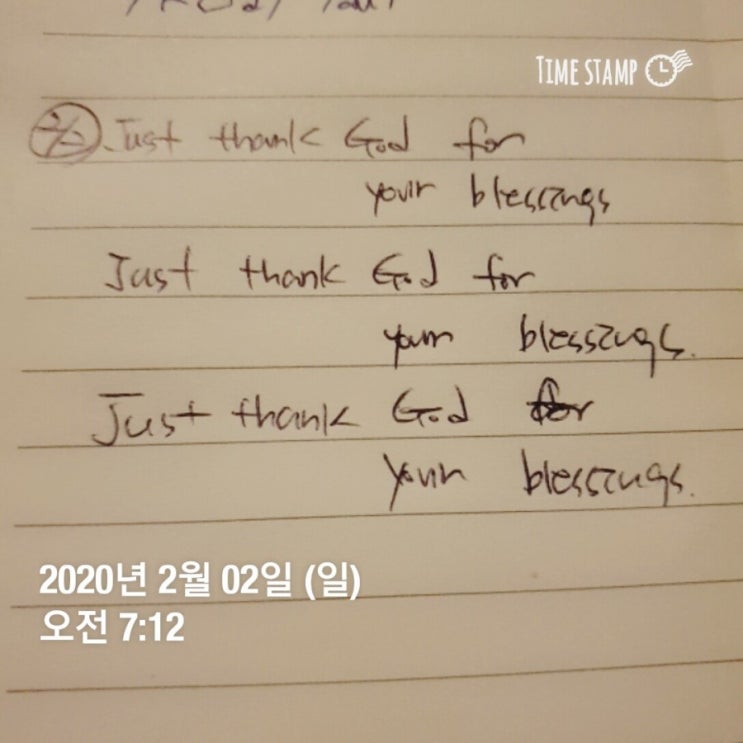 TIME STAMP
2/2 Just thank God for
your blessings
Just thank God for
your blessings.
Just thank God for
your blessings.
2020년 2월 02일 (일)
오전 7:12